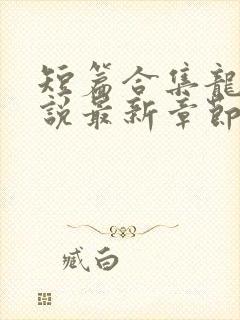 短篇合集龍
說最新章節
臧白